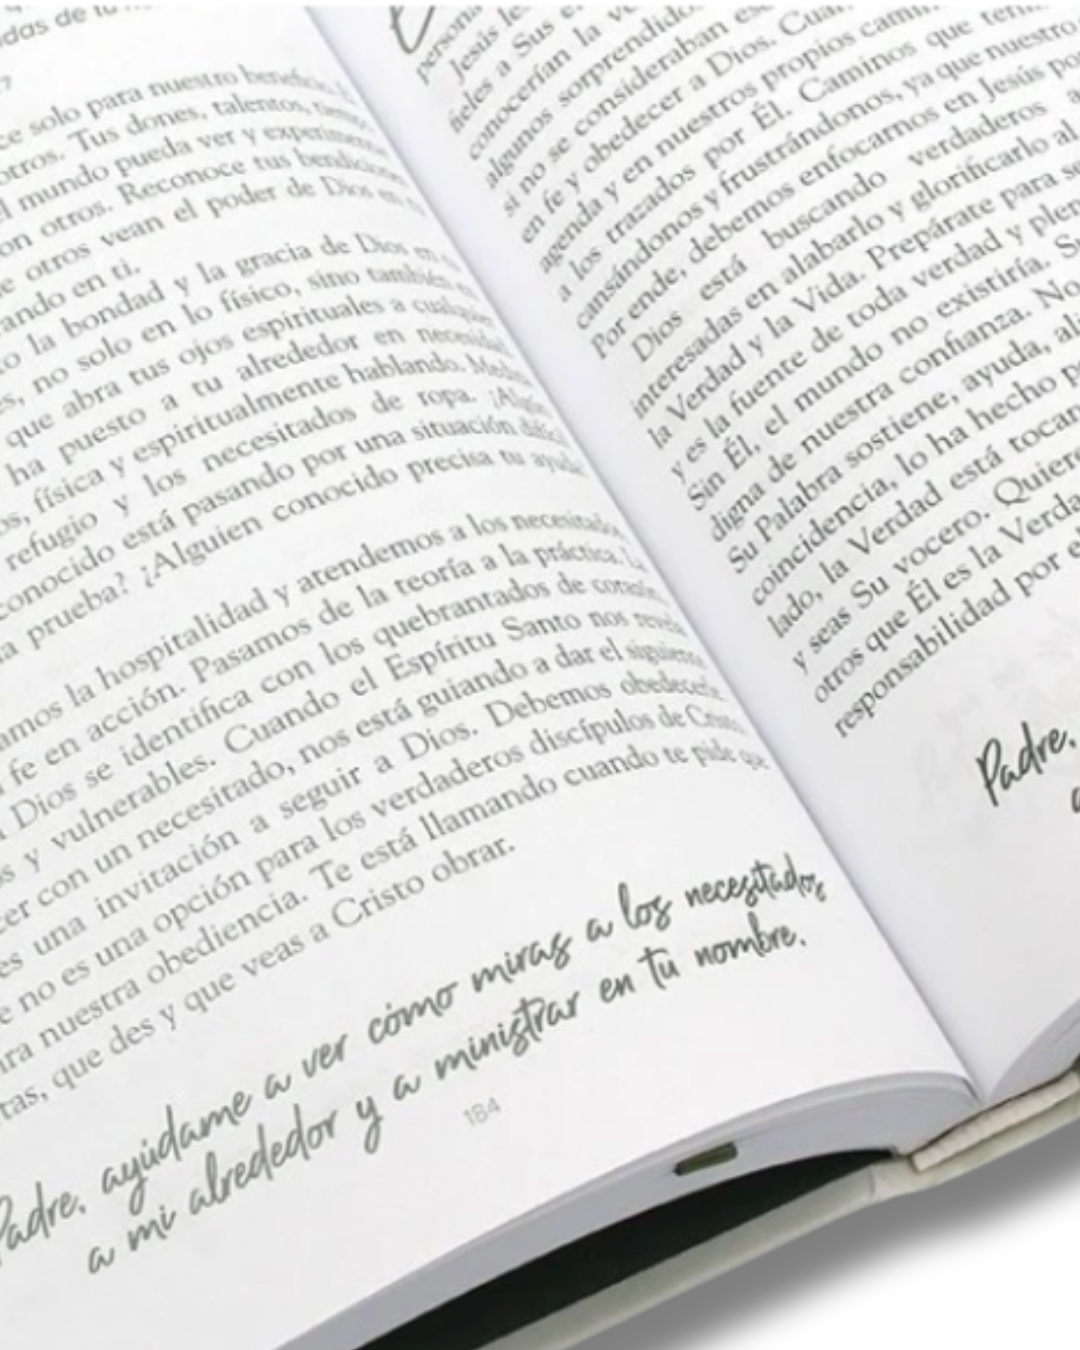 ce solo para nuestro beneficio
otros. Tus dones, talentos, tiempo,
l mundo pueda ver y experimentar
on otros. Reconoce tus bendiciones
e otros vean el poder de Dios en
rando en ti.
to la bondad y la gracia de Dios en
es, no solo en lo físico, sino también
que abra tus ojos espirituales a cualquier
ha puesto a tu alrededor en necesidad
os, física y espiritualmente hablando.
refugio y los necesitados de ropa. ¿Alguien
conocido está pasando por una situación difícil
a prueba? ¿Alguien conocido precisa tu ayuda?
amos la hospitalidad y atendemos a los necesitados
fe en acción. Pasamos de la teoría a la práctica. La
Dios se identifica con los quebrantados de corazón
s y vulnerables. Cuando el Espíritu Santo nos revela
cer con un necesitado, nos está guiando a dar el siguiente
es una invitación a seguir a Dios. Debemos obedecerle
e no es una opción para los verdaderos discípulos de Cristo
ra nuestra obediencia. Te está llamando cuando te pide que
tas, que des y que veas a Cristo obrar.
Padre, ayúdame a ver cómo miras a los necesitados
a mi alrededor y a ministrar en tu nombre.
184
persona
Jesús les
fieles a Sus e
conocerían la ve
algunos sorprendidos
si no se consideraban es
en fe y obedecer a Dios. Cuan
agenda y en nuestros propios camin
a los trazados por Él. Caminos que term
cansándonos y frustrándonos, ya que nuestro
Por ende, debemos enfocarnos en Jesús por
Dios está buscando verdaderos a
interesadas en alabarlo y glorificarlo al
la Verdad y la Vida. Prepárate para se
y es la fuente de toda verdad y plen
Sin Él, el mundo no existiría. Su
digna de nuestra confianza. No
Su Palabra sostiene, ayuda, ali
coincidencia, lo ha hecho po
lado, la Verdad está tocan
y seas Su vocero. Quiere
otros que Él es la Verda
responsabilidad por e
Padre,
a